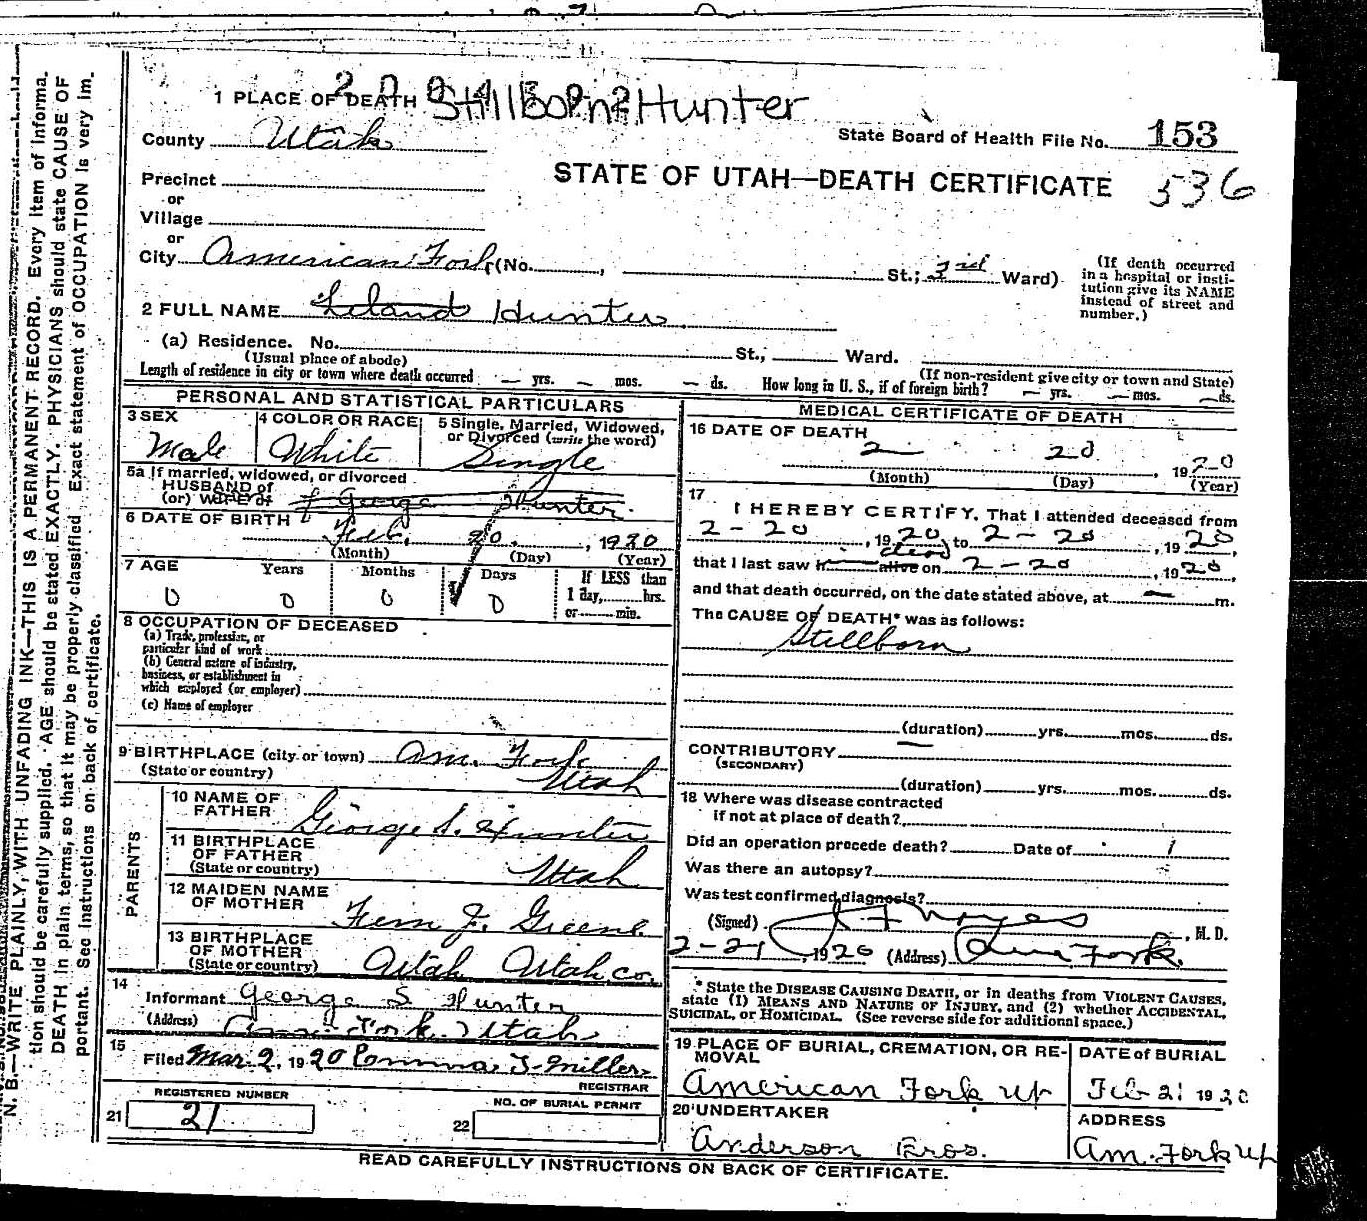 1 PLACE OF DEATH Stillborn Hunter
County Utah
State Board of Health File No. 153
STATE OF UTAH—DEATH CERTIFICATE 536
Precinct
or
Village
or
City American Fork (No. , St.; 3rd Ward)
(If death occurred in a hospital or insti-
tution give its NAME instead of street and number.)
2 FULL NAME Leland Hunter
(a) Residence. No. St., Ward.
(Usual place of abode) (If non-resident give city or town and State)
Length of residence in city or town where death occurred — yrs. — mos. — ds. How long in U. S., if of foreign birth? — yrs. — mos. — ds.
PERSONAL AND STATISTICAL PARTICULARS
3 SEX Male
4 COLOR OR RACE White
5 Single, Married, Widowed, or Divorced (write the word) Single
5a If married, widowed, or divorced
HUSBAND of
(or) WIFE of George Hunter
6 DATE OF BIRTH Feb. 20, 1920
(Month) (Day) (Year)
7 AGE Years Months Days If LESS than
1 day, hrs.
or min.
0 0 0 0
8 OCCUPATION OF DECEASED
(a) Trade, profession, or
particular kind of work
(b) General nature of industry,
business, or establishment in
which employed (or employer)
(c) Name of employer
9 BIRTHPLACE (city or town) Am. Fork
(State or country) Utah
PARENTS
10 NAME OF FATHER George S. Hunter
11 BIRTHPLACE OF FATHER
(State or country) Utah
12 MAIDEN NAME OF MOTHER Fern J. Greene
13 BIRTHPLACE OF MOTHER
(State or country) Utah Utah co.
14 Informant George S Hunter
(Address) Am. Fork Utah
15 Filed Mar. 2, 1920 Emma J. Miller
REGISTRAR
REGISTERED NUMBER
21 21
NO. OF BURIAL PERMIT
22
MEDICAL CERTIFICATE OF DEATH
16 DATE OF DEATH
2 20, 1920
(Month) (Day) (Year)
17 I HEREBY CERTIFY, That I attended deceased from
2-20, 1920 to 2-20, 1920,
that I last saw h alive dead on 2-20, 1920,
and that death occurred, on the date stated above, at — m.
The CAUSE OF DEATH* was as follows:
Stillborn
(duration) yrs. mos. ds.
CONTRIBUTORY —
(SECONDARY)
(duration) yrs. mos. ds.
18 Where was disease contracted
if not at place of death?
Did an operation precede death? Date of
Was there an autopsy?
Was test confirmed diagnosis?
(Signed) J F Noyes, M. D.
2-21, 1920 (Address) Am Fork.
* State the DISEASE CAUSING DEATH, or in deaths from VIOLENT CAUSES,
state (1) MEANS AND NATURE OF INJURY, and (2) whether ACCIDENTAL,
SUICIDAL, or HOMICIDAL. (See reverse side for additional space.)
19 PLACE OF BURIAL, CREMATION, OR RE-
MOVAL
American Fork Ut
DATE of BURIAL
Feb 21 1920
20 UNDERTAKER
Anderson Bros.
ADDRESS
Am. Fork Ut
READ CAREFULLY INSTRUCTIONS ON BACK OF CERTIFICATE.
N. B.—WRITE PLAINLY, WITH UNFADING INK—THIS IS A PERMANENT RECORD. Every item of informa-
tion should be carefully supplied. AGE should be stated EXACTLY. PHYSICIANS should state CAUSE OF
DEATH in plain terms, so that it may be properly classified. Exact statement of OCCUPATION is very im-
portant. See instructions on back of certificate.